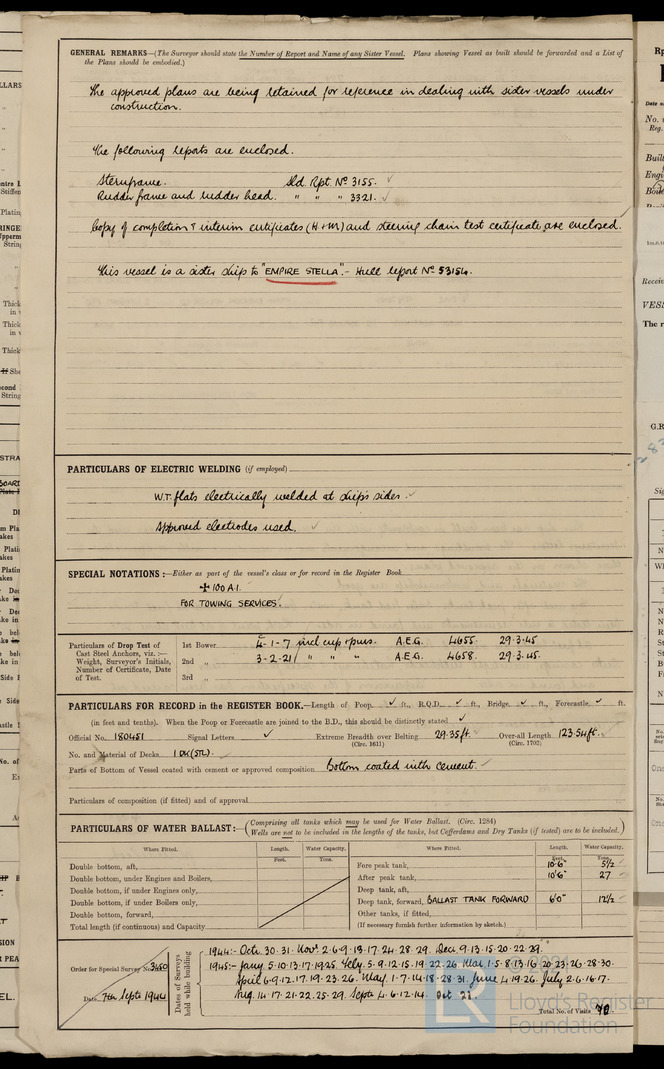 GENERAL REMARKS—(The Surveyor should state the Number of Report and Name of any Sister Vessel. Plans showing Vessel as built should be forwarded and a List of
the Plans should be embodied.)
The approved plans are being retained for reference in dealing with sister vessels under
construction.
The following reports are enclosed.
Sternframe. Sld. Rpt. No 3155. ✓
Rudder frame and rudder head. " " " 3321. ✓
Copy of completion & interim certificates (H & M) and steering chain test certificate are enclosed.
This vessel is a sister ship to "EMPIRE STELLA". - Hull report No 53154.
PARTICULARS OF ELECTRIC WELDING (if employed)
W.T. flats electrically welded at ship's sides. ✓
Approved electrodes used. ✓
SPECIAL NOTATIONS:—Either as part of the vessel's class or for record in the Register Book
✠ 100 A.1.
FOR TOWING SERVICES.
Particulars of Drop Test of
Cast Steel Anchors, viz. :—
Weight, Surveyor's Initials,
Number of Certificate, Date
of Test.
1st Bower 4-1-7 incl cup & pins. A.E.G. 4655. 29.3.45
2nd „ 3-2-21 " " " A.E.G. 4658. 29.3.45.
3rd „
PARTICULARS FOR RECORD in the REGISTER BOOK.—Length of Poop ✓ ft., R.Q.D. ✓ ft., Bridge ✓ ft., Forecastle ✓ ft.
(in feet and tenths). When the Poop or Forecastle are joined to the B.D., this should be distinctly stated ✓
Official No. 180451 Signal Letters ✓ Extreme Breadth over Belting 29.35ft. Over-all Length 123.54ft.
(Circ. 1611) (Circ. 1702)
No. and Material of Decks 1 DK (STL).
Parts of Bottom of Vessel coated with cement or approved composition Bottom coated with cement. ✓
Particulars of composition (if fitted) and of approval
PARTICULARS OF WATER BALLAST:—(Comprising all tanks which may be used for Water Ballast. (Circ. 1284)
Wells are not to be included in the lengths of the tanks, but Cofferdams and Dry Tanks (if tested) are to be included.)
Where Fitted. Length. Water Capacity. Where Fitted. Length. Water Capacity.
Feet. Tons. Feet. Tons.
Double bottom, aft, Fore peak tank, 10'6" 5½
Double bottom, under Engines and Boilers, After peak tank, 10'6" 27
Double bottom, if under Engines only, Deep tank, aft,
Double bottom, if under Boilers only, Deep tank, forward, BALLAST TANK FORWARD 6'0" 12½
Double bottom, forward, Other tanks, if fitted,
Total length (if continuous) and Capacity (If necessary furnish further information by sketch.)
Order for Special Survey No. 3450
Date 7th Septr 1944
Dates of Surveys held while building
1944:- Oct. 30.31. Nov. 2.6.9.13.17.24.28.29. Dec. 9.13.15.20.22.29.
1945:- Jany 5.10.13.17.19.25. Feby. 5.9.12.15.19.22.26. Mar. 1.5.8.13.16.20.23.26.28.30.
April 6.9.12.17.19.23.26. May. 1.7.14.18.28.31. June 4.19.26. July 2.6.16.17.
Aug. 14.17.21.22.25.29. Septr 4.6.12.14. Oct 22.
Total No. of Visits 72.
Lloyd's Register
Foundation